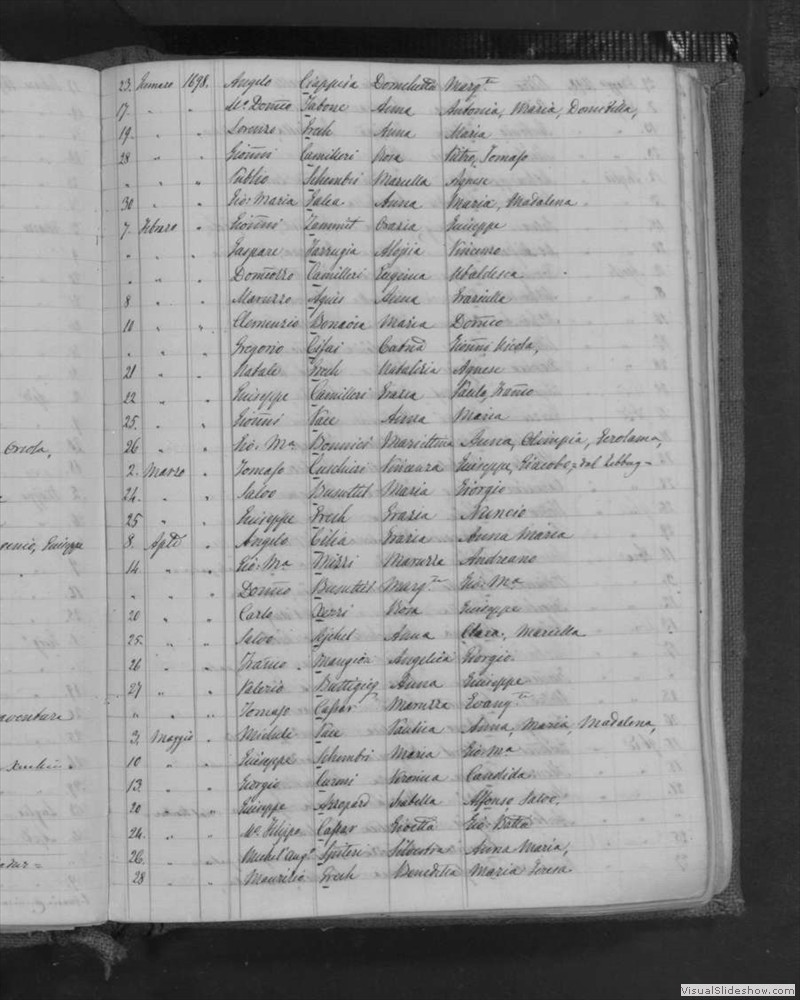 Orsola,
Giuseppe
aventura
23. Gennaro 1698. Angelo Ciappara Domenica Marg.ta
17. " " Mo. Domco Tabone Anna Antonia, Maria, Domitilla,
19. " " Lorenzo Grech Anna Maria
28 " " Gionni Camilleri Rosa Pietro, Tomaso
" " " Publio Schembri Marcella Agnese
30. " " Gio: Maria Galea Anna Maria, Madalena
7. Febraro " Gionni Zammit Grazia Giuseppe
" " " Gaspare Farrugia Aloisia Vincenzo
" " " Camilleri Eugenia Ubaldesca
8 " " Agius Anna Graziulla
10 " " Clemenzio Bonavia Maria Domco
" " " Gregorio Gionni Nicola,
21 " " Natale Grech Agnese
22 " " Giuseppe Camilleri Grazia Paulo, Franco
25. " " Gionni Pace Anna Maria
26 " " Gio: Ma Bonnici Anna, Olimpia, Gerolama,
2. Marzo " Tomaso Cuschieri Vincenza Giuseppe, Giacobo, dal Zebbug
24. " " Salvo Busuttil Maria Giorgio
25 " " Giuseppe Grech Grazia Nuncio
8. Aple " Angelo Cilia Maria Anna Maria
14 " " Gio: Ma Mizzi Maruzza Andreano
" " " Domco Busuttil Marg.ta Gio: Ma
20 " " Carlo Rosa Giuseppe
25. " " Salvo Anna Clara, Marcella
26 " " Franco Mangion Angelica Giorgio
27 " " Valerio Buttigieg Anna Giuseppe
" " " Tomaso Cassar Maruzza Evang.ta
3. Maggio " Michele Pace Paulica Anna, Maria, Madalena,
10 " " Giuseppe Schembri Maria Gio: Ma
13. " " Giorgio Curmi Veronica Candida
20 " " Giuseppe Azzopard Isabella Alfonso, Salvo,
24. " " Mo. Filippo Cassar Gio: Batta
26. " " Michel'Ango Spiteri Silvestra Anna Maria,
28 " " Maurizio Grech Benedetta Maria Teresa
VisualSlideshow.com